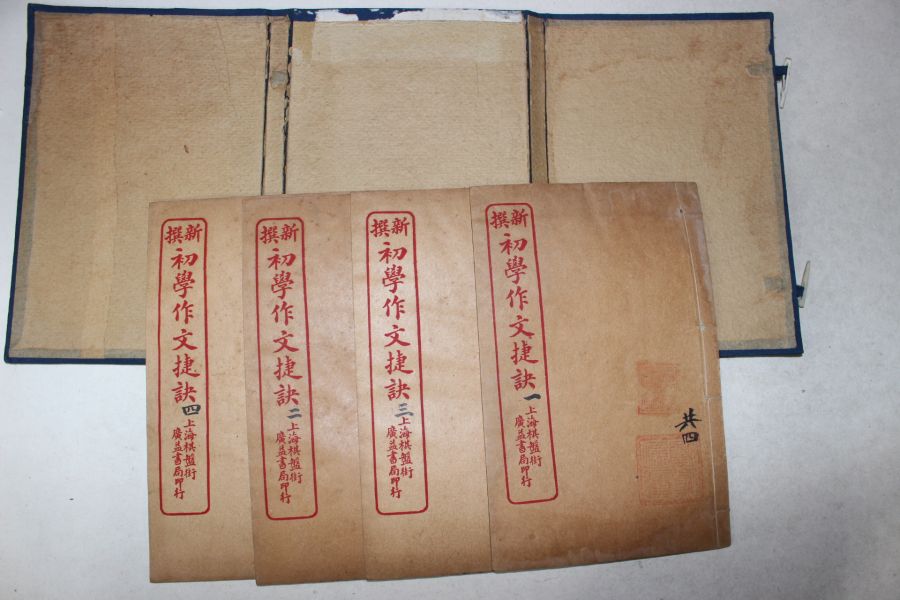 共四
新撰
初學作文捷訣
一
上海棋盤街
廣益書局印行
新撰
初學作文捷訣
三
上海棋盤街
廣益書局印行
新撰
初學作文捷訣
二
上海棋盤街
廣益書局印行
新撰
初學作文捷訣
四
上海棋盤街
廣益書局印行